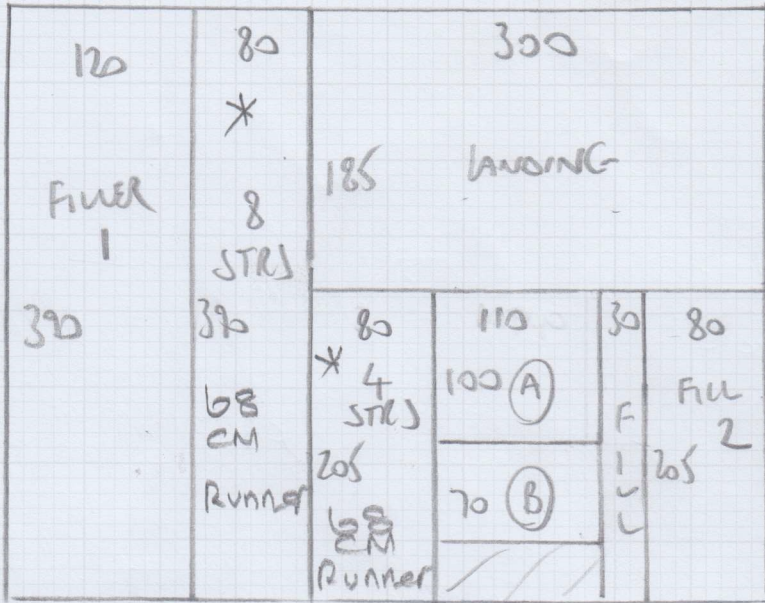 120
FILLER
1
390
80
*
8
STRS
390
68
CM
Runner
300
185
LANDING
80
*
4
STRS
205
68
CM
Runner
110
100 A
70 B
30
FILL
80
FILL
2
205